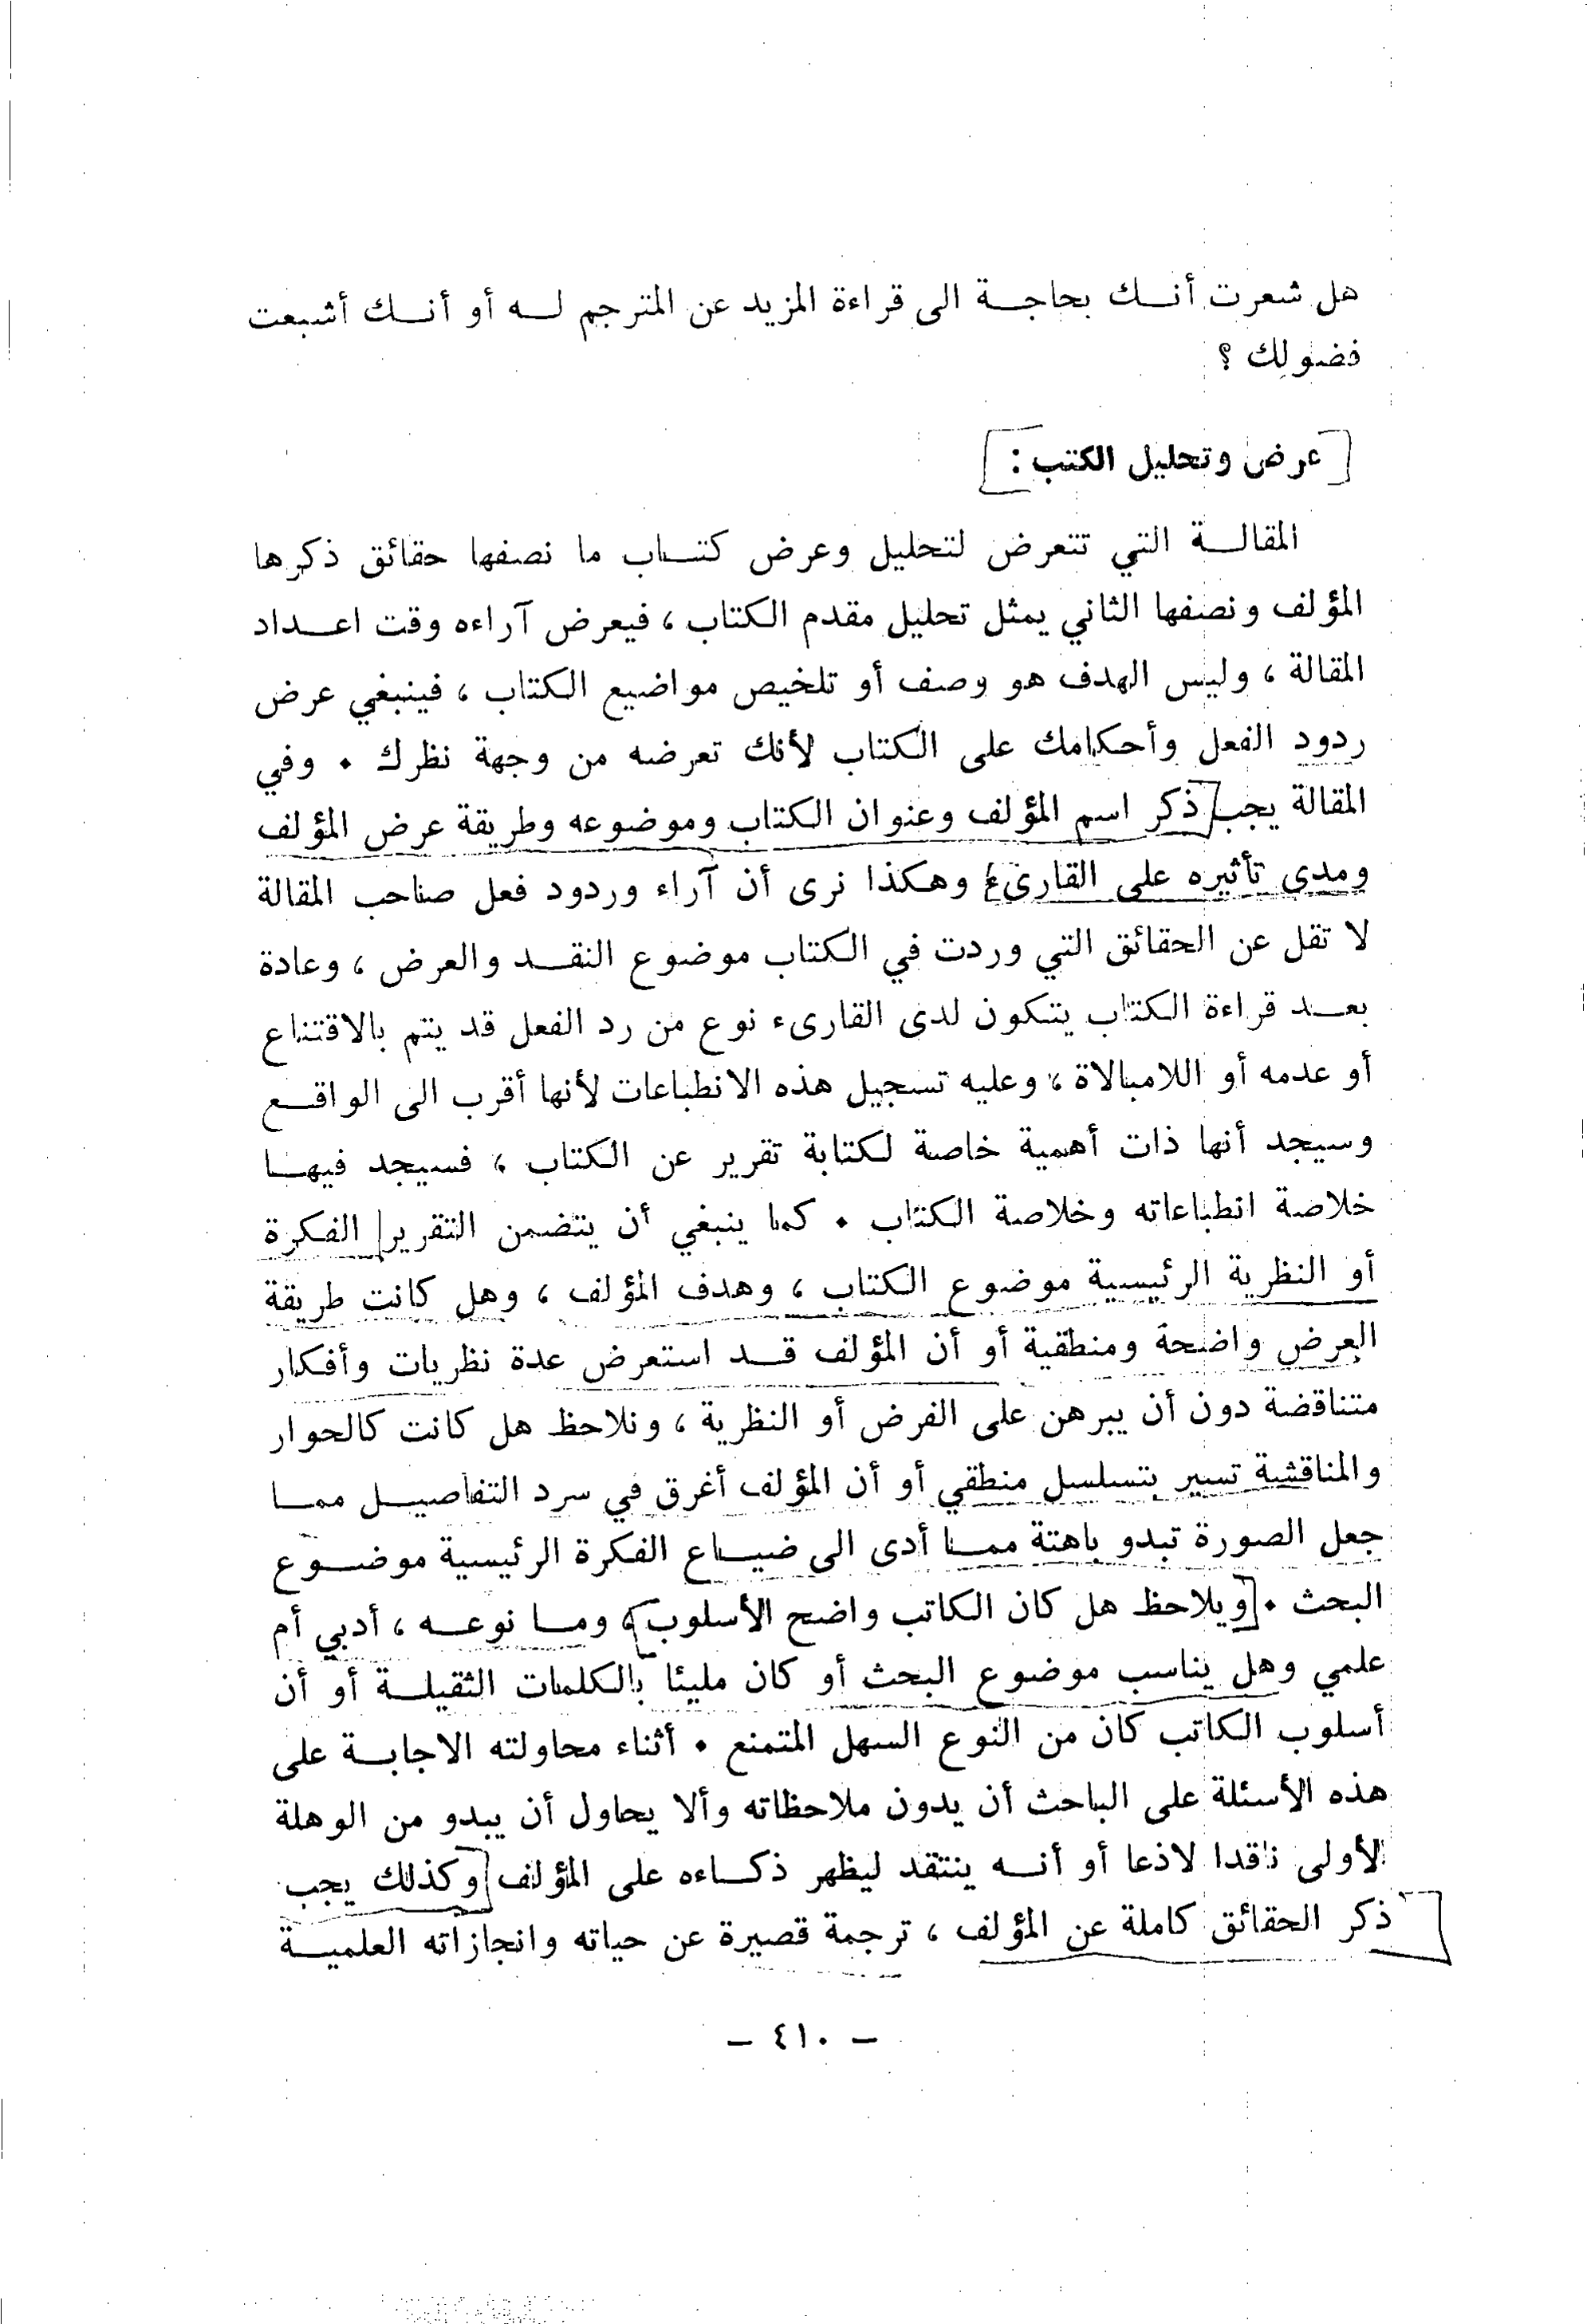 هل شعرت أنك بحاجة الى قراءة المزيد عن المترجم له أو أنك أشبعت
فضولك ؟
عرض وتحليل الكتب :
المقالة التي تتعرض لتحليل وعرض كتاب ما نصفها حقائق ذكرها
المؤلف ونصفها الثاني يمثل تحليل مقدم الكتاب ، فيعرض آراءه وقت اعداد
المقالة ، وليس الهدف هو وصف أو تلخيص مواضيع الكتاب ، فينبغي عرض
ردود الفعل وأحكامك على الكتاب لأنك تعرضه من وجهة نظرك . وفي
المقالة يجب ذكر اسم المؤلف وعنوان الكتاب وموضوعه وطريقة عرض المؤلف
ومدى تأثيره على القارىء وهكذا نرى أن آراء وردود فعل صاحب المقالة
لا تقل عن الحقائق التي وردت في الكتاب موضوع النقد والعرض ، وعادة
بعد قراءة الكتاب يتكون لدى القارىء نوع من رد الفعل قد يتم بالاقتناع
أو عدمه أو اللامبالاة ، وعليه تسجيل هذه الانطباعات لأنها أقرب الى الواقع
وسيجد أنها ذات أهمية خاصة لكتابة تقرير عن الكتاب ، فسيجد فيها
خلاصة انطباعاته وخلاصة الكتاب . كما ينبغي أن يتضمن التقرير الفكرة
أو النظرية الرئيسية موضوع الكتاب ، وهدف المؤلف ، وهل كانت طريقة
العرض واضحة ومنطقية أو أن المؤلف قد استعرض عدة نظريات وأفكار
متناقضة دون أن يبرهن على الفرض أو النظرية ، ونلاحظ هل كانت كالحوار
والمناقشة تسير بتسلسل منطقي أو أن المؤلف أغرق في سرد التفاصيل مما
جعل الصورة تبدو باهتة مما أدى الى ضياع الفكرة الرئيسية موضوع
البحث . ويلاحظ هل كان الكاتب واضح الأسلوب ، وما نوعه ، أدبي أم
علمي وهل يناسب موضوع البحث أو كان مليئا بالكلمات الثقيلة أو أن
أسلوب الكاتب كان من النوع السهل المتمنع . أثناء محاولته الاجابة على
هذه الأسئلة على الباحث أن يدون ملاحظاته وألا يحاول أن يبدو من الوهلة
الأولى ناقدا لاذعا أو أنه ينتقد ليظهر ذكاءه على المؤلف وكذلك يجب
ذكر الحقائق كاملة عن المؤلف ، ترجمة قصيرة عن حياته وانجازاته العلمية
– ٤١٠ –